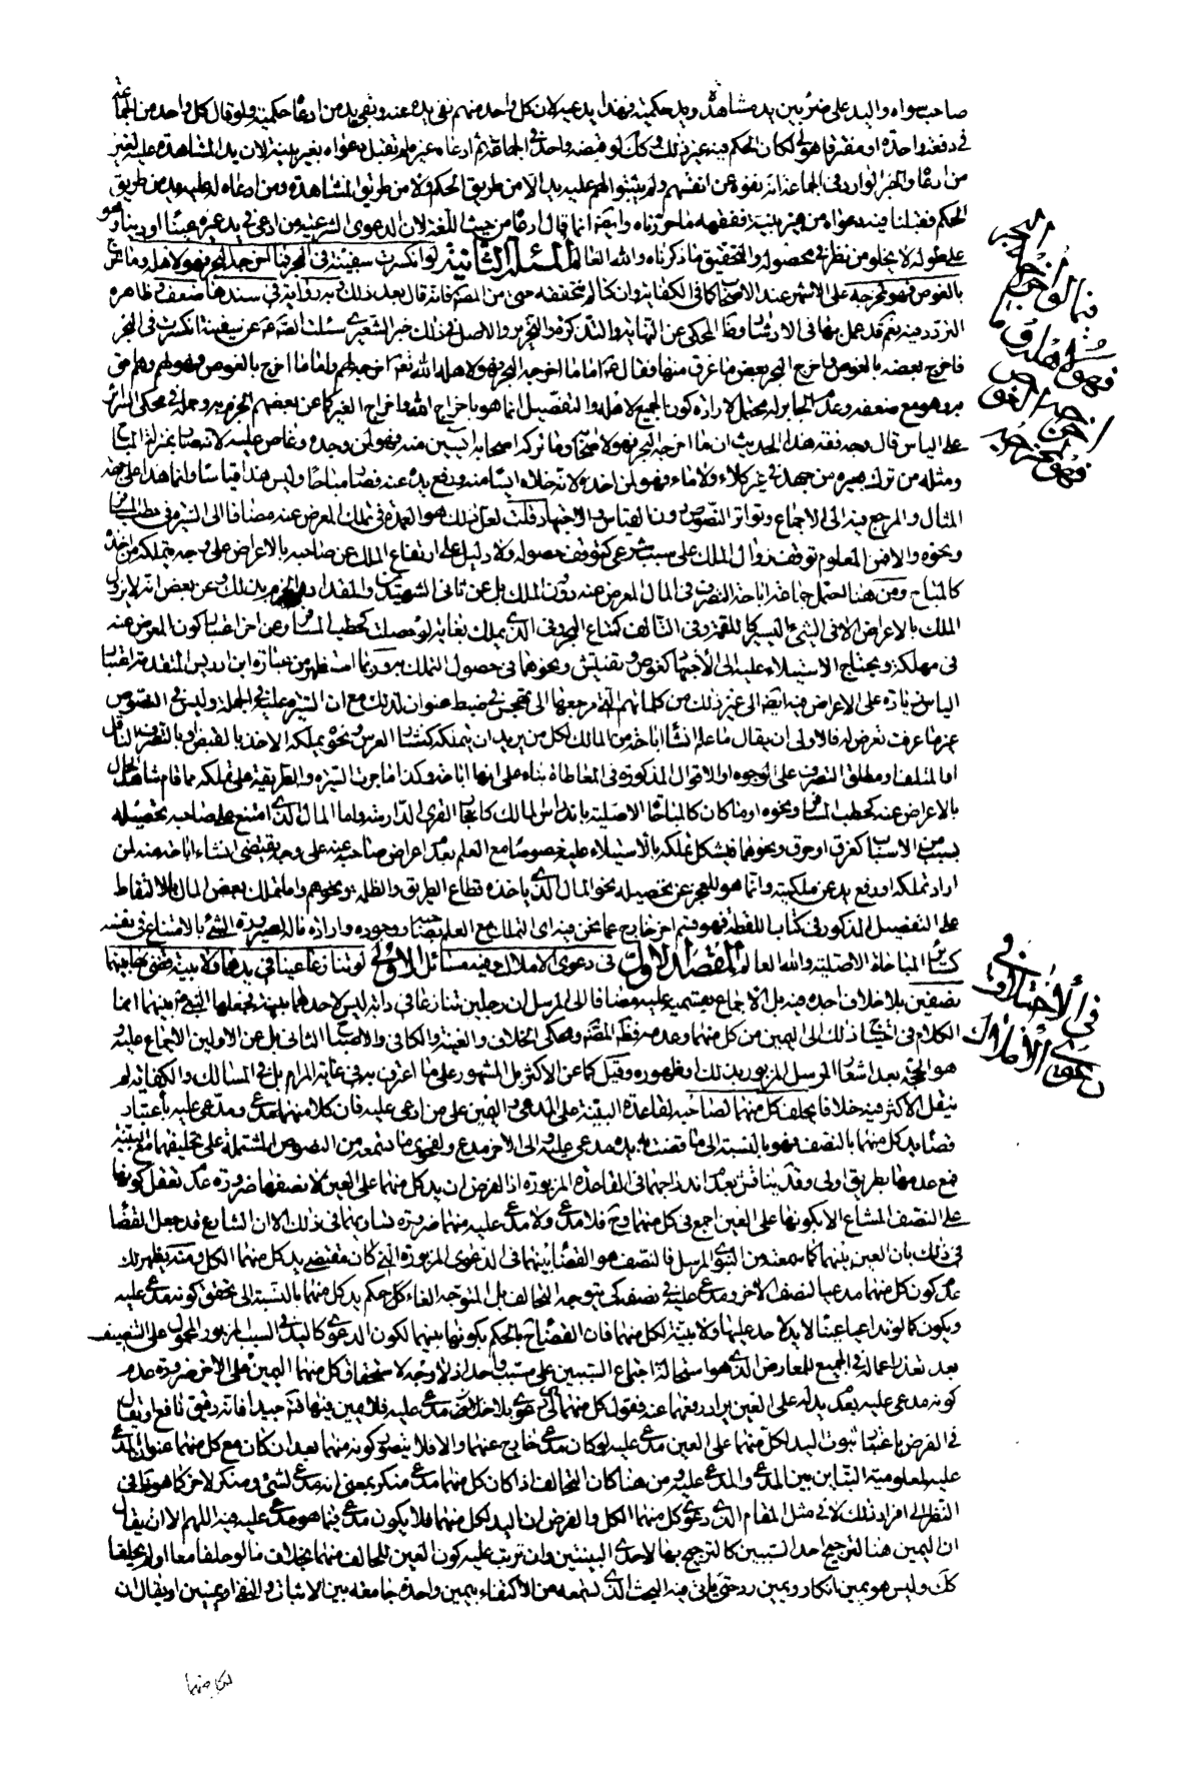 صاحب سواه واليد على ضربين يد مشاهدة ويد حكمية فهذا يد عليه لان كل واحد منهم نفى يده عنه وبقي يد من ادعاه حكمية ولو قال كل واحد من الجماعة
في دفعة واحدة او متفرقا هو لي لكان الحكم فيه غير ذلك وكك لو قبضه واحد في الجماعة ثم ادعاه غيره لم تقبل دعواه بغير بينة لان اليد المشاهدة عليه لغير
من ادعاه والخبر الوارد في الجماعة انهم نفوه عن انفسهم ولم يثبتوا لهم عليه يدا لا من طريق الحكم ولا من طريق المشاهدة ومن ادعاه له عليه يد من طريق
الحكم فقبلنا فيه دعواه من غير بينة ففقهه ما حررناه وايضا انما قال ادعاه من حيث اللغة لان الدعوى الشرعية من ادعى في يد غيره عينا او دينا وهو
على طوله لا يخلو من نظر في محصوله والتحقيق ما ذكرناه والله العالم المسئلة الثانية لو انكسرت سفينة في البحر فما اخرجه البحر فهو لاهله وما اخرج
بالغوص فهو لمخرجه على الاشهر عند الاصحاب كما في الكفاية وان كنا لم نتحققه حتى من المصنف فانه قال بعد ذلك به رواية في سندها ضعف في ظاهره
التردد فيه نعم قد عمل بها في الارشاد وظ المحكي عن النهاية والتذكرة والتحرير والاصل في ذلك خبر الشعيري سئلت الصادق ع عن سفينة انكسرت في البحر
فاخرج بعضه بالغوص واخرج البحر بعض ما غرق منها فقال ع اما ما اخرجه البحر فهو لاهله الله تعه اخرجه لهم واما ما اخرج بالغوص فهو لهم وهم احق
به وهو مع ضعفه وعدم الجابر له محتمل لارادة كون الجميع لاهله والتفصيل انما هو باخراج الله واخراج الغير كما عن بعضهم الجزم به وحمله في محكي السرائر
على الياس قال وجه فقه هذا الحديث ان ما اخرجه البحر فهو لاصحابه وما تركه اصحابه ايسين منه فهو لمن وجده وغاص عليه لانه صار بمنزلة المباح
ومثله من ترك بعيره من جهد في غير كلاء ولا ماء فهو لمن اخذه لانه خلاه ايسا منه ورفع يده عنه فصار مباحا وليس هذا قياسا وانما هذا على جهة
المثال والمرجع فيه الى الاجماع وتواتر النصوص دون القياس والاجتهاد قلت لعل ذلك هو العمدة في تملك المعرض عنه مضافا الى السيرة في حطب المسافر
ونحوه والا فمن المعلوم توقف زوال الملك على سبب شرعي كتوقف حصوله ولا دليل على ارتفاع الملك عن صاحبه بالاعراض على وجه يتملكه من اخذه
كالمباح ومن هنا احتمل جماعة اباحة التصرف في المال المعرض عنه دون الملك بل عن ثاني الشهيدين والمقداد الجزم بذلك عن بعض انه لا يزول
الملك بالاعراض الا في الشيء اليسير كاللقمة وفي التالف كمتاع البحر وفي الذي يملك بغاية لو حصلت كحطب المسافر وعن اخر اعتبار كون المعرض عنه
في مهلكة ويحتاج الاستيلاء عليه الى الاجتهاد كغوص وتفتيش ونحوهما في حصول التملك به وربما استظهر من عبارة ابن ادريس المتقدمة اعتبار
الياس زيادة على الاعراض فيه ايضا الى غير ذلك من كلماتهم التي مرجعها الى تهجس في ضبط عنوان لذلك مع ان السيرة عليه في الجملة وليس في النصوص
غير ما عرفت تعرض له فالاولى ان يقال ما علم انشاء اباحة من المالك لكل من يريد ان يتملكه كنثار العرس ونحوه يملكه الاخذ بالقبض او بالتصرف الناقل
او المتلف او مطلق التصرف على الوجوه او الاقوال المذكورة في المعاطاة بناء على انها اباحة وكذا ما جرت السيرة والطريقة على تملكه مما قام شاهد الحال
بالاعراض عنه كحطب المسافر ونحوه او ما كان كالمباحات الاصلية باندراس المالك كاحجار القرى الدارسة واما المال الذي امتنع على صاحبه تحصيله
بسبب من الاسباب كغرق او حرق ونحوهما فيشكل تملكه بالاستيلاء عليه خصوصا مع العلم بعدم اعراض صاحبه عنه على وجه يقتضي انشاء اباحة منه لمن
اراد تملكه او رفع يد عن ملكيته وانما هو للعجز عن تحصيله نحو المال الذي ياخذه قطاع الطريق والظلمة ونحوهم واما تملك بعض المال بالالتقاط
على التفصيل المذكور في كتاب اللقطة فهو قسم اخر خارج عما نحن فيه اي التملك مع العلم بصاحبه ووجوده وارادة ماله لصيرورة الشيء بالامتناع في نفسه
كسائر المباحات الاصلية والله العالم المقصد الاول في دعوى الاملاك وفيه مسائل الاولى لو تنازعا عينا في يدهما ولا بينة قضي بها بينهما
نصفين بلا خلاف اجده فيه بل الاجماع بقسميه عليه مضافا الى المرسل ان رجلين تنازعا في دابة ليس لاحدهما بينة فجعلها النبي ص بينهما انما
الكلام في احتياج ذلك الى اليمين من كل منهما وعدمه فظ المصنف ومحكي الخلاف والغنية والكافي والاصباح الثاني بل عن الاولين الاجماع عليه
هو الحجة بعد اشعار المرسل المزبور بذلك او ظهوره وقيل كما عن الاكثر بل المشهور على ما اعترف به في غاية المرام بل في المسالك والكفاية لم
ينقل الاكثر فيه خلافا يحلف كل منهما لصاحبه لقاعدة البينة على المدعي واليمين على من ادعي عليه فان كلا منهما مدع ومدعى عليه باعتبار
قضاء يد كل منهما بالنصف فهو بالنسبة الى ما قضت به يده مدعى عليه والى الاخر مدع ولفحوى ما تسمعه من النصوص المشتملة على تحليفهما مع البينة
فمع عدمها بطريق اولى وقد يناقش بعدم اندراجهما في القاعدة المزبورة اذ الفرض ان يد كل منهما على العين لا نصفها ضرورة عدم تعقل كونها
على النصف المشاع الا بكونها على العين اجمع في كل منهما وح فلا مدع ولا مدعى عليه منهما ضرورة تساويهما في ذلك الا ان الشارع قد جعل القضاء
في ذلك بان العين بينهما كما سمعته من النبوي المرسل فالنصف هو القضاء بينهما في الدعوى المزبورة التي كان مقتضى يد كل منهما الكل ومنه يظهر لك
عدم كون كل منهما مدعيا لنصف الاخر ومدعى عليه في نصفه كي يتوجه التحالف بل المتوجه الغاء كل حكم يد كل منهما بالنسبة الى تحقق كونه مدعى عليه
ويكون كما لو تداعيا عينا لا يد لاحد عليها ولا بينة لكل منهما فان القضاء ح بالحكم بكونها بينهما لكون الدعوى كاليد في السبب المزبور المحمول على التنصيف
بعد تعذر اعماله في الجميع للمعارض الذي هو استحالة اجتماع السببين على مسبب واحد اذ لا وجه لاستحقاق كل منهما اليمين على الاخر ضرورة عدم
كونه مدعى عليه بعدم يد له على العين يراد رفعها عنه فقول كل منهما لي دعوى بلا خلاف مدعى عليه فلا يمين فيها فته جيدا فانه دقيق نافع او يقال
في الفرض باعتبار ثبوت اليد لكل منهما على العين مدعى عليه لو كان مدع خارج عنهما والا فلا يتصور كونه منهما بعد ان كان مع كل منهما عنوان المدعى
عليه لمعلومية التباين بين المدعي والمدعى عليه ومن هنا كان التحالف اذا كان كل منهما مدع منكر بمعنى انه مدع لشيء ومنكر لاخر كما هو واضح في
النظر الى افراد ذلك لا في مثل المقام الذي دعوى كل منهما الكل والفرض ان اليد لكل منهما فلا يكون مدع فيما هو مدعى عليه فيه اللهم الا ان يقال
ان اليمين هنا لترجيح احد السببين كالترجيح بها لاحدى البينتين وان ترتب عليه كون العين للحالف منهما بخلاف ما لو حلفا معا او لم يحلفا
كك وليس هو يمين انكار ويمين رد حتى ياتي فيه البحث الذي تسمعه من الاكتفاء بيمين واحدة جامعة بين الاثبات والنفي او يمينين او يقال ان
لكل منهما
فيما لو اخرجه البحر
فهو لاهله وما
اخرج بالغوص
فهو لمخرجه
في الاختلاف في
دعوى الاملاك